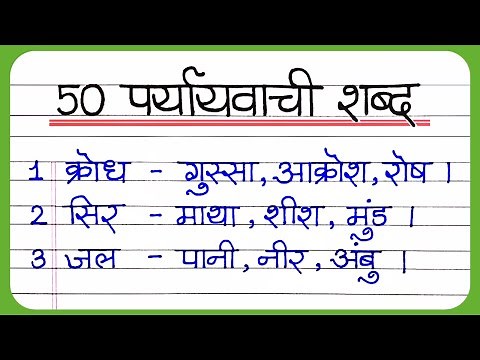 50 पर्यायवाची शब्द
1 क्रोध - गुस्सा, आक्रोश, रोष ।
2 सिर - माथा, शीश, मुंड ।
3 जल - पानी, नीर, अंबु ।